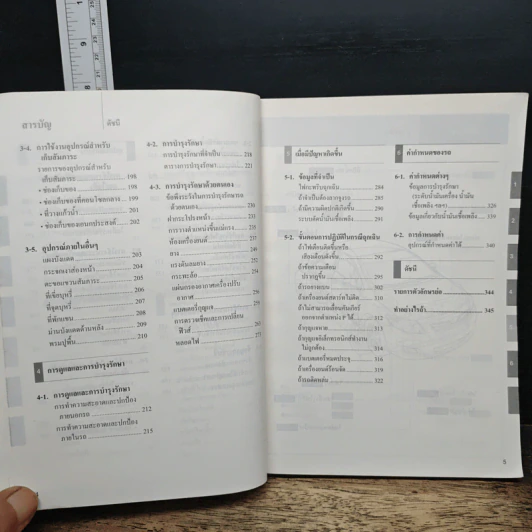 สารบัญ
ดัชนี
3-4. การใช้งานอุปกรณ์สำหรับ
เก็บสัมภาระ
รายการของอุปกรณ์สำหรับ
เก็บสัมภาระ 198
• ช่องเก็บของ 198
• ช่องเก็บของที่คอนโซลกลาง 199
• ที่วางแก้วน้ำ 201
• ช่องเก็บของอเนกประสงค์ 202
3-5. อุปกรณ์ภายในอื่นๆ
แผงบังแดด 203
กระจกเงาส่องหน้า 204
ตะขอแขวนสัมภาระ 205
ที่เขี่ยบุหรี่ 206
ที่จุดบุหรี่ 207
ที่พักแขน 208
ม่านบังแดดด้านหลัง 209
พรมปูพื้น 210
4 การดูแลและการบำรุงรักษา
4-1. การดูแลและการบำรุงรักษา
การทำความสะอาดและปกป้อง
ภายนอกรถ 212
การทำความสะอาดและปกป้อง
ภายในรถ 215
4-2. การบำรุงรักษา
การบำรุงรักษาที่จำเป็น 218
ตารางการบำรุงรักษา 221
4-3. การบำรุงรักษาด้วยตนเอง
ข้อพึงระวังในการบำรุงรักษารถ
ด้วยตนเอง
ฝากระโปรงหน้า
การวางตำแหน่งขึ้นแม่แรง
ห้องเครื่องยนต์
ยาง
แรงดันลมยาง
กระทะล้อ
แผ่นกรองอากาศเครื่องปรับ
อากาศ
แบตเตอรี่กุญแจ
การตรวจเช็คและการเปลี่ยน
ฟิวส์
หลอดไฟ
5 เมื่อมีปัญหาเกิดขึ้น
5-1. ข้อมูลที่จำเป็น
ไฟกะพริบฉุกเฉิน 284
ถ้าจำเป็นต้องลากจูงรถ 285
ถ้ามีความผิดปกติเกิดขึ้น 290
ระบบตัดน้ำมันเชื้อเพลิง 291
5-2. ขั้นตอนการปฏิบัติในกรณีฉุกเฉิน
ถ้าไฟเตือนติดขึ้นหรือ
เสียงเตือนดังขึ้น 292
ถ้าข้อความเตือน
ปรากฏขึ้น 295
ถ้ายางแบน
ถ้าเครื่องยนต์สตาร์ทไม่ติด 310
ถ้าไม่สามารถเลื่อนคันเกียร์
ออกจากตำแหน่ง P ได้ 312
ถ้ากุญแจหาย 313
ถ้ากุญแจอิเล็กทรอนิกส์ทำงาน
ไม่ถูกต้อง 314
ถ้าแบตเตอรี่หมดประจุ 316
ถ้าเครื่องยนต์ร้อนจัด 319
ถ้ารถติดหล่ม 322
6 ค่ากำหนดของรถ
6-1. ค่ากำหนดต่างๆ
ข้อมูลการบำรุงรักษา
(ระดับน้ำมันเครื่อง น้ำมัน
เชื้อเพลิง ฯลฯ) 326
ข้อมูลเกี่ยวกับน้ำมันเชื้อเพลิง 339
6-2. การกำหนดค่า
อุปกรณ์ที่กำหนดค่าได้ 340
ดัชนี
รายการตัวอักษรย่อ 344
ทำอย่างไรถ้า 345